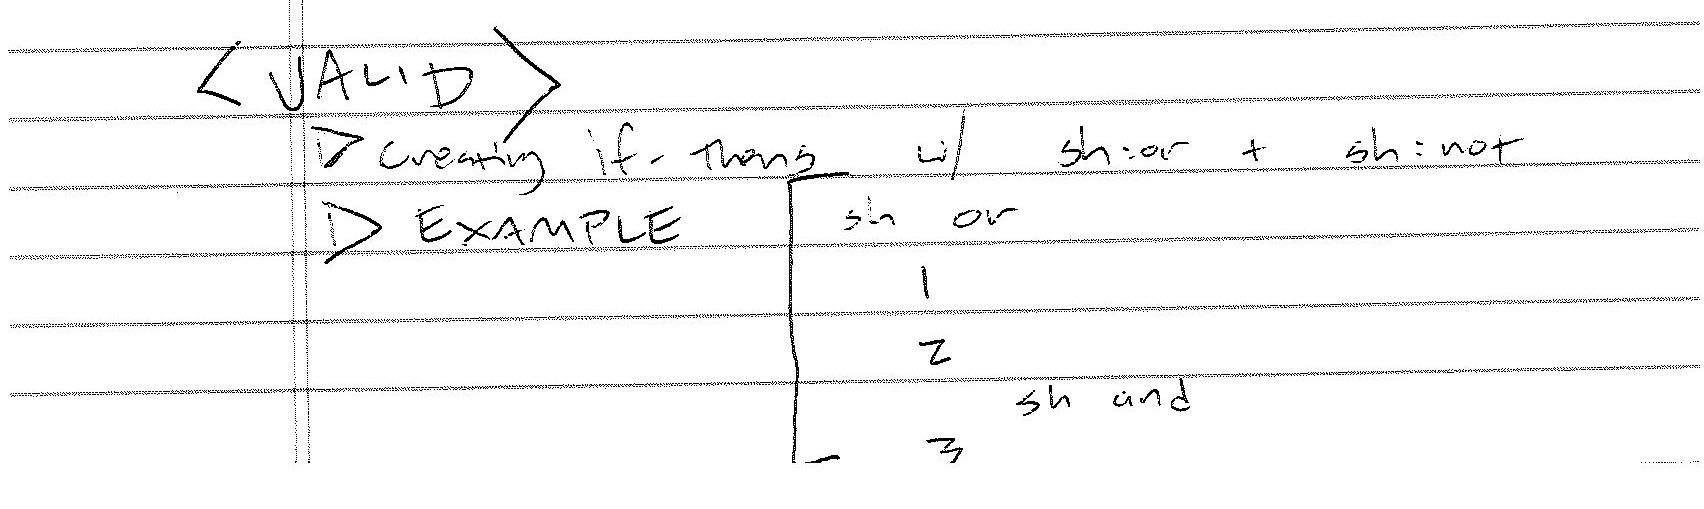 <VALID>
▷ Creating if-thens w/ sh:or + sh:not
▷ EXAMPLE
sh or
1
2
sh and
3